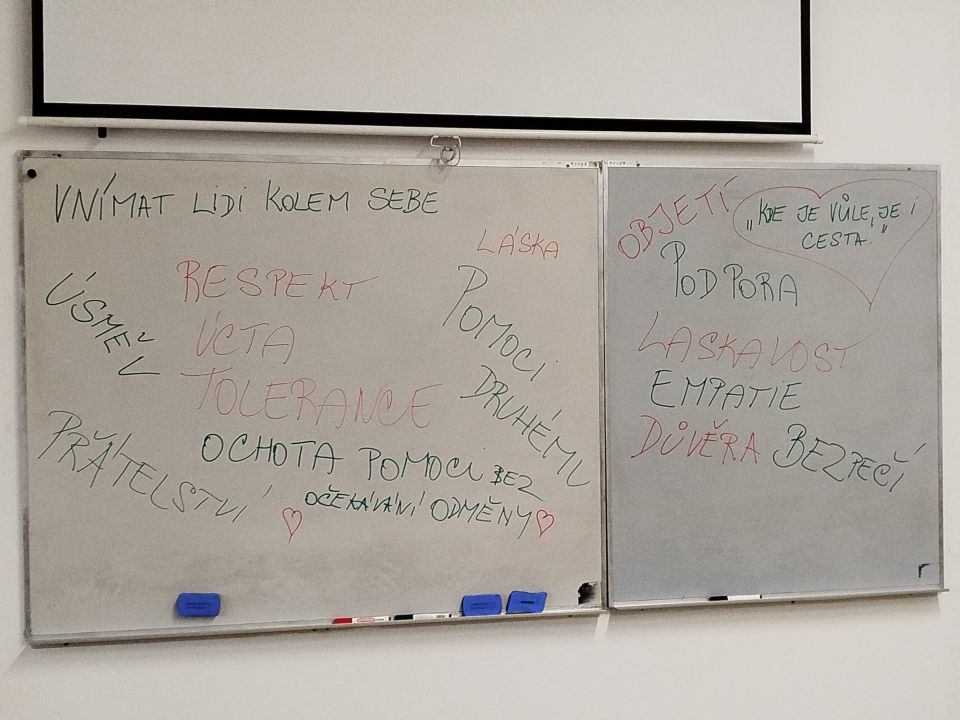 VNÍMAT LIDI KOLEM SEBE
LÁSKA
RESPEKT
ÚSMĚV
ÚCTA
POMOCI
DRUHÉMU
TOLERANCE
PŘÁTELSTVÍ
OCHOTA POMOCI BEZ
OČEKÁVÁNÍ ODMĚNY
OBJETÍ
„KDE JE VŮLE, JE I
CESTA."
PODPORA
LASKAVOST
EMPATIE
DŮVĚRA BEZPEČÍ